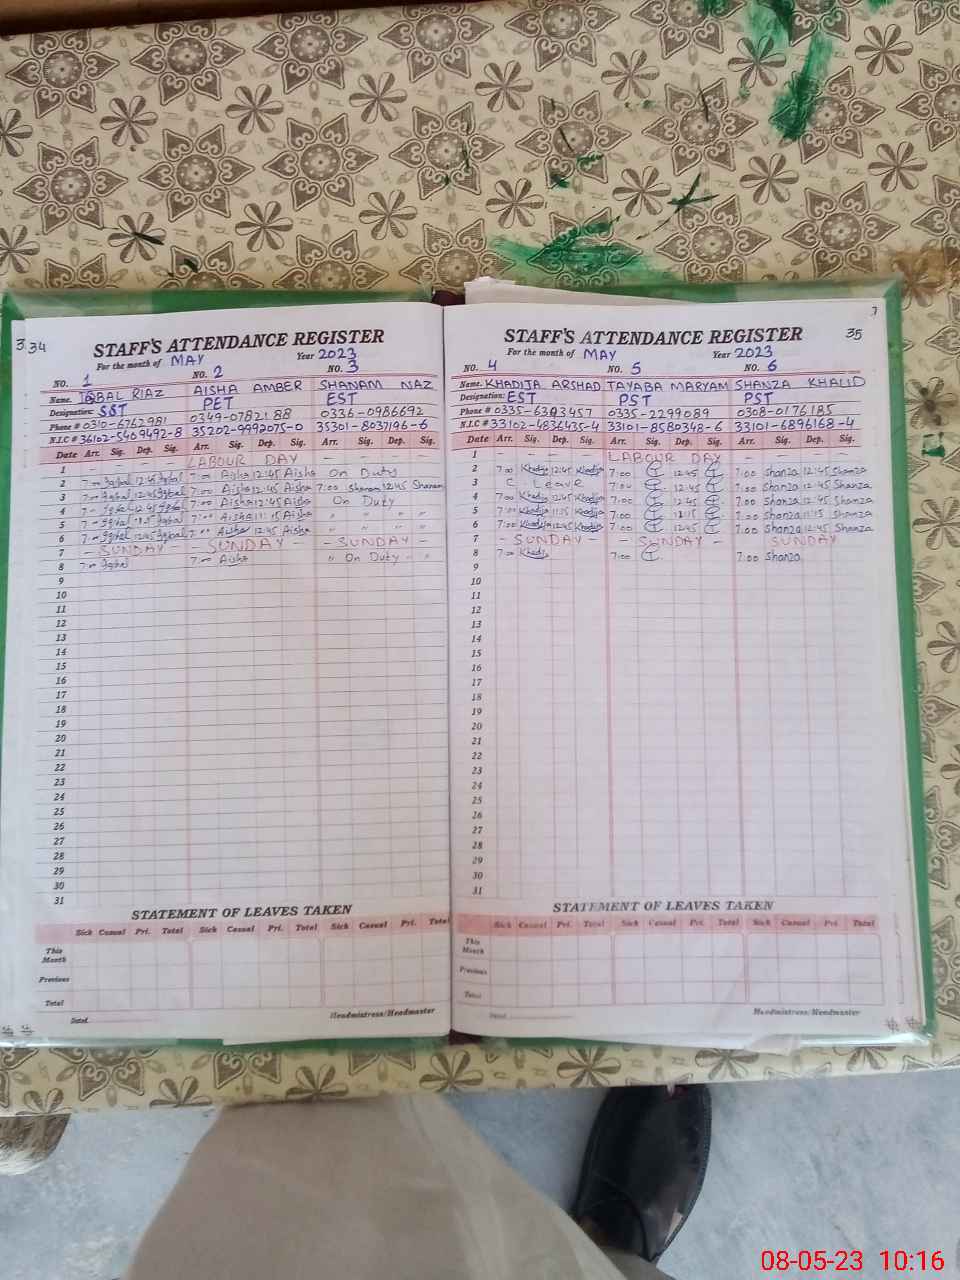 3.34
STAFF'S ATTENDANCE REGISTER
For the month of MAY Year 2023
NO. 1 NO. 2 NO. 3
Name. IQBAL RIAZ AISHA AMBER SHANAM NAZ
Designation: SST PET EST
Phone # 0310-6762981 0349-0782188 0336-0986692
N.I.C # 36102-5409492-8 35202-9992075-0 35301-8037196-6
Date Arr. Sig. Dep. Sig. Arr. Sig. Dep. Sig. Arr. Sig. Dep. Sig.
1 - - LABOUR DAY - - - -
2 7-00 Iqbal 12:45 Iqbal 7:00 Aisha 12:45 Aisha On Duty
3 7-00 Iqbal 12:45 Iqbal 7:00 Aisha 12:45 Aisha 7:00 Shanam 12:45 Shanam
4 7- Iqbal 12:45 Iqbal 7:00 Aisha 12:45 Aisha On Duty
5 7- Iqbal 11:15 Iqbal 7:00 Aisha 11:15 Aisha " " "
6 7- Iqbal 12:45 Iqbal 7:00 Aisha 12:45 Aisha " " "
7 - SUNDAY - - SUNDAY - - SUNDAY -
8 7:00 Iqbal 7:00 Aisha " On Duty - "
9
10
11
12
13
14
15
16
17
18
19
20
21
22
23
24
25
26
27
28
29
30
31
STATEMENT OF LEAVES TAKEN
Sick Casual Pri. Total Sick Casual Pri. Total Sick Casual Pri. Total
This Month
Previous
Total
Dated.
Headmistress/Headmaster
35
STAFF'S ATTENDANCE REGISTER
For the month of MAY Year 2023
NO. 4 NO. 5 NO. 6
Name. KHADIJA ARSHAD TAYABA MARYAM SHANZA KHALID
Designation: EST PST PST
Phone # 0335-2299089 0308-0176185
N.I.C # 33102-4836435-4 33101-8580348-6 33101-6896168-4
Date Arr. Sig. Dep. Sig. Arr. Sig. Dep. Sig. Arr. Sig. Dep. Sig.
1 - - - - LABOUR DAY - - - -
2 7:00 Khadija 12:45 Khadija 7:00 T 12:45 T 7:00 Shanza 12:45 Shanza
3 C Leave 7:00 T 12:45 T 7:00 Shanza 12:45 Shanza
4 7:00 Khadija 12:45 Khadija 7:00 T 12:45 T 7:00 Shanza 12:45 Shanza
5 7:00 Khadija 11:15 Khadija 7:00 T 11:15 T 7:00 Shanza 11:15 Shanza
6 7:00 Khadija 12:45 Khadija 7:00 T 12:45 T 7:00 Shanza 12:45 Shanza
7 - SUNDAY - - SUNDAY - SUNDAY
8 7:00 Khadija 7:00 T 7:00 Shanza
9
10
11
12
13
14
15
16
17
18
19
20
21
22
23
24
25
26
27
28
29
30
31
STATEMENT OF LEAVES TAKEN
Sick Casual Pri. Total Sick Casual Pri. Total Sick Casual Pri Total
This Month
Previous
Total
Dated
Headmistress/Headmaster
08-05-23 10:16